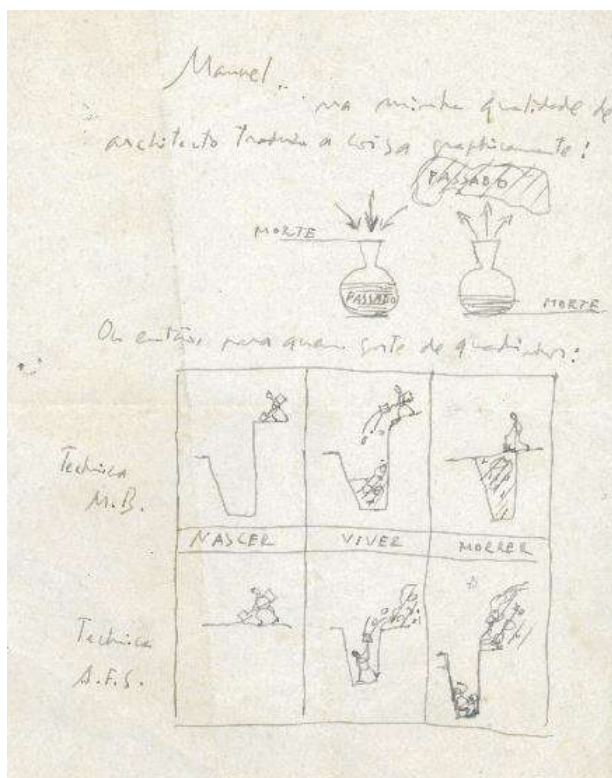 Manuel..
na minha qualidade de
architecto traduzo a coisa graphicamente!
PASSADO
MORTE
PASSADO
MORTE
Ou então, para quem goste de quadrinhos:
Technica
M.B.
NASCER VIVER MORRER
Technica
A.F.S.